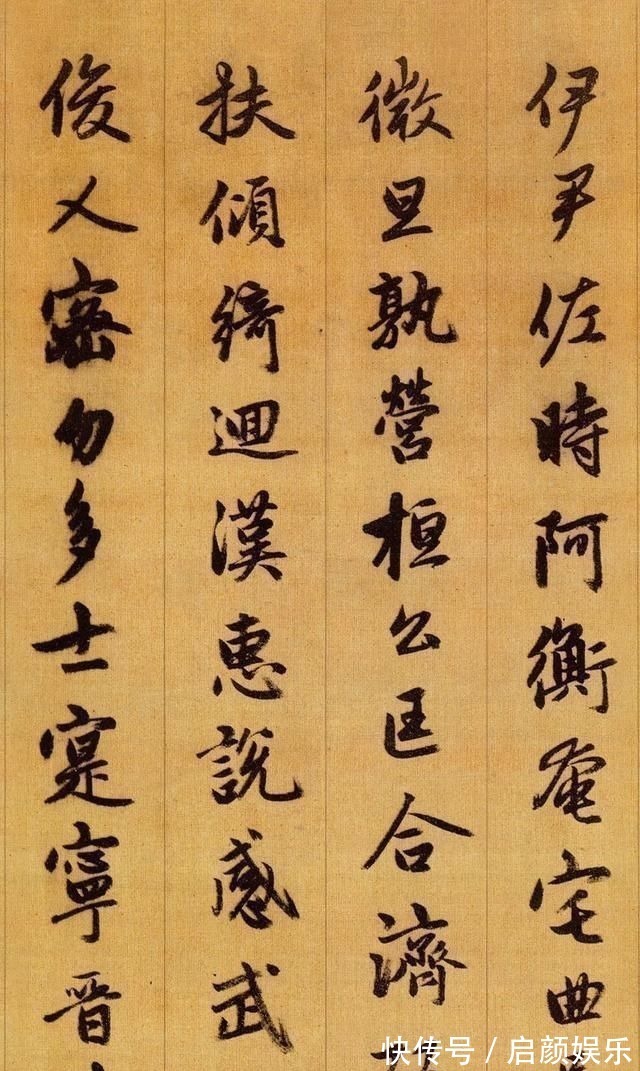 伊尹佐時阿衡奄宅曲
微旦孰營桓公匡合濟
扶傾綺迴漢惠說感武
俊乂密勿多士寔寧晉
快传号/启颜娱乐